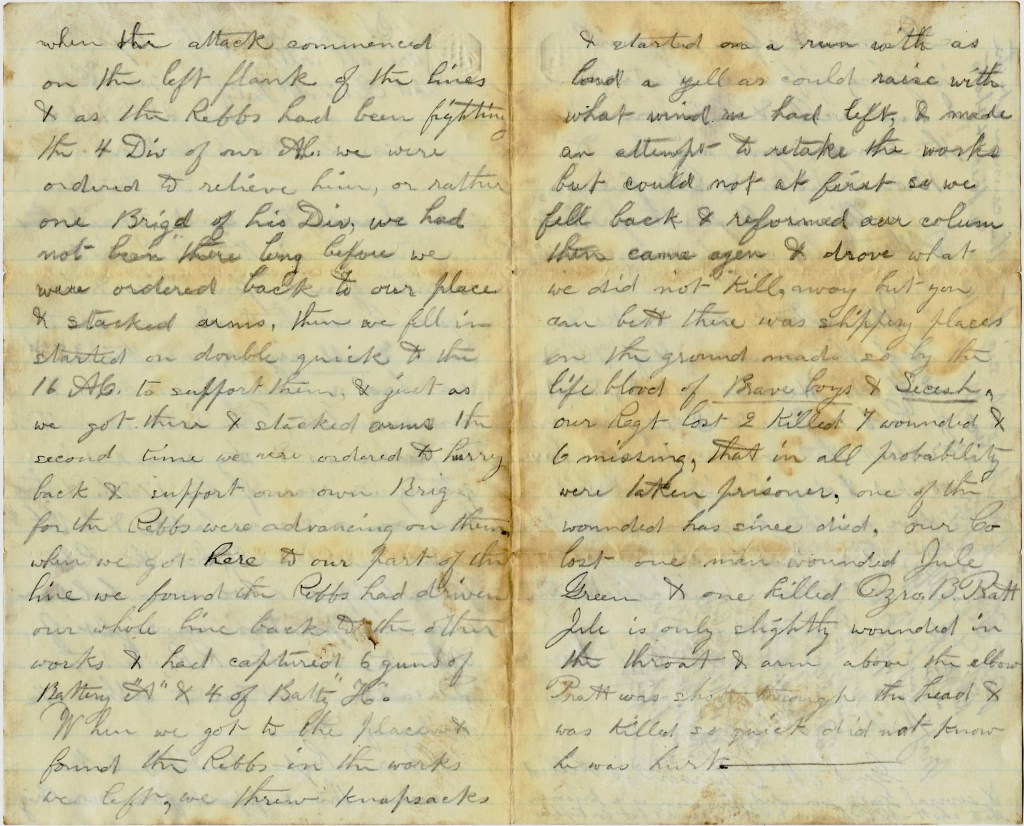 when the attack commenced
on the left flank of the lines
& as the Rebbs had been fighting
the 4 Div of our AC. we were
ordered to relieve him, or rather
one Brigd of his Div, we had
not been there long before we
were ordered back to our place
& stacked arms, then we fell in
started on double quick to the
16 AC. to support them, & just as
we got there & stacked arms the
second time we were ordered to hurry
back & support our own Brig
for the Rebbs were advancing on them
when we got here to our part of the
line we found the Rebbs had driven
our whole line back to the other
works & had captured 6 guns of
Battery "A" & 4 of Batty "H".
When we got to the place &
found the Rebbs in the works
we left, we threw knapsacks
& started on a run with as
loud a yell as could raise with
what wind we had left, & made
an attempt to retake the works
but could not at first so we
fell back & reformed our colum
then came agen & drove what
we did not kill, away but you
can bett there was slippery places
on the ground made so by the
life blood of Brave boys & Secesh,
our Regt lost 2 killed 7 wounded &
6 missing, that in all probability
were taken prisoner, one of the
wounded has since died, our Co
lost one man wounded Jule
Green & one killed Ozro. B. Pratt
Jule is only slightly wounded in
the throat & arm above the elbow
Pratt was shot through the head &
was killed so quick did not know
he was hurt